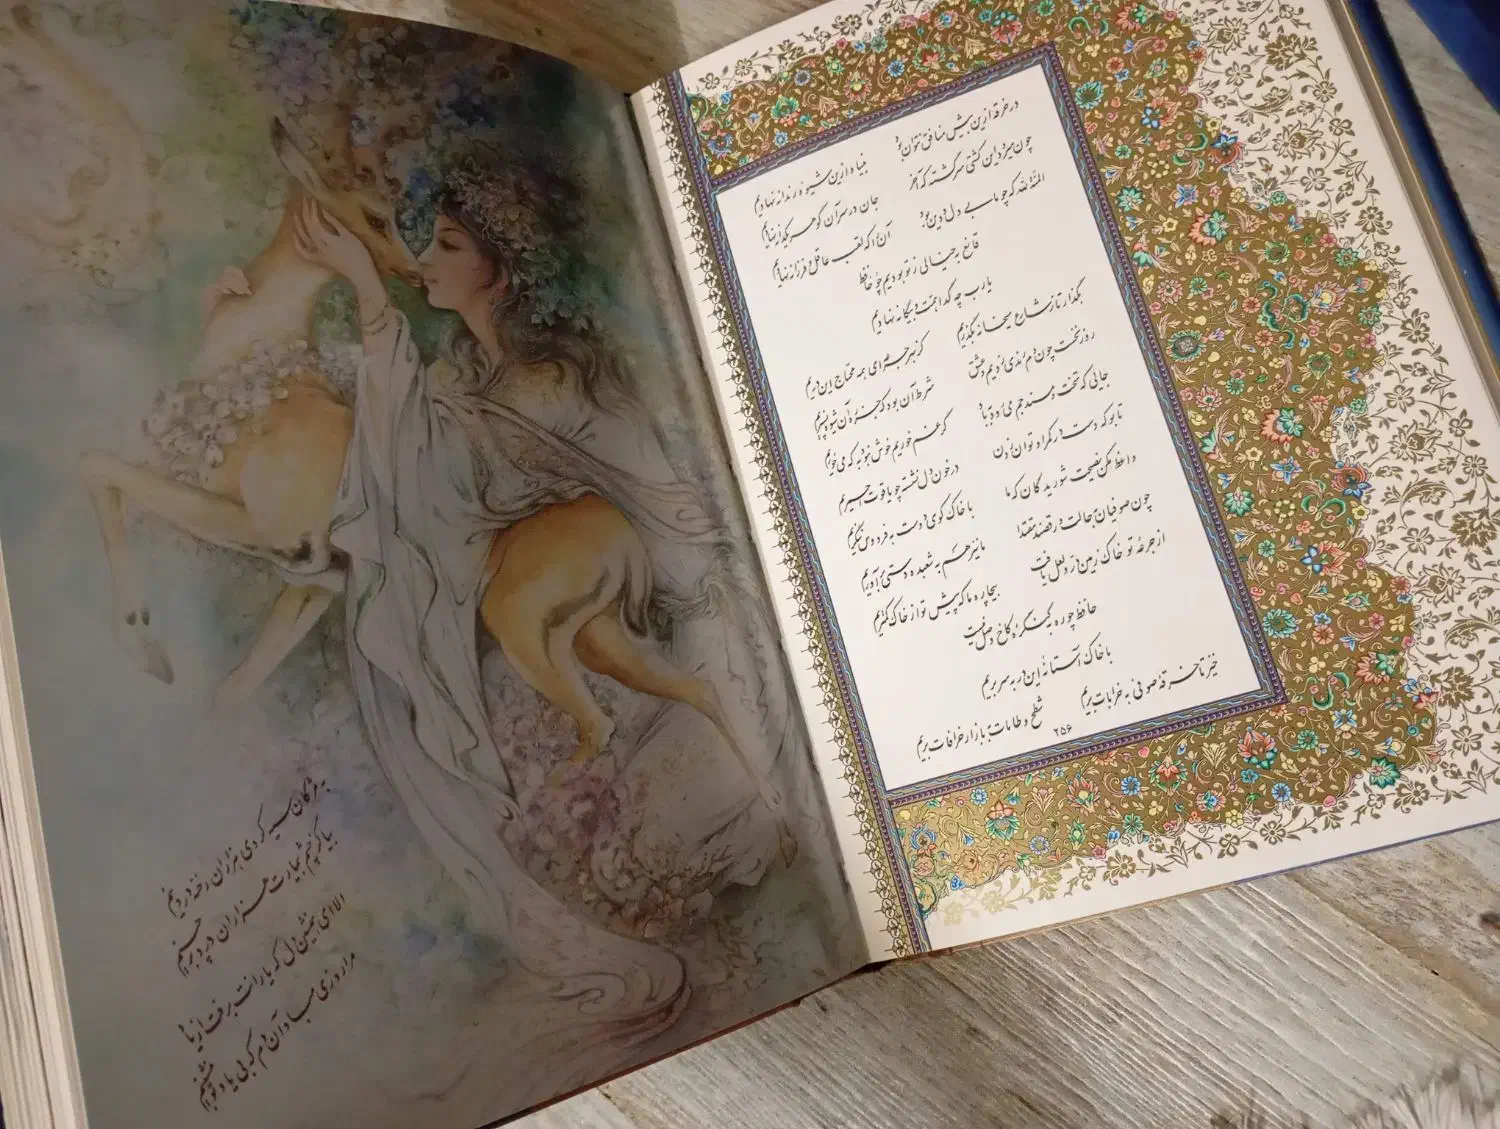 در خرقه ازین بیش منافق نتوان بود بنیاد ازین شیوهٔ رندانه نهادیم
چون میرود این کشتی سرگشته که آخر جان در سر آن گوهر یکدانه نهادیم
المنة لله که چو ما بی دل و دین بود آن را که لقب عاقل و فرزانه نهادیم
قانع به خیالی ز تو بودیم چو حافظ
یارب چه گدا همت و بیگانه نهادیم
بگذار تا ز شارع میخانه بگذریم کز بهر جرعه‌ای همه محتاج این دریم
روز نخست چون دم رندی زدیم و عشق شرط آن بود که جز ره آن شیوه نسپریم
جائی که تخت و مسند جم میرود به باد گر غم خوریم خوش نبود به که می خوریم
تا بو که دست در کمر او توان زدن در خون دل نشسته چو یاقوت احمریم
واعظ مکن نصیحت شوریدگان که ما با خاک کوی دوست به فردوس ننگریم
چون صوفیان به حالت و رقصند مقتدا ما نیز هم به شعبده دستی برآوریم
از جرعهٔ تو خاک زمین در و لعل یافت بیچاره ما که پیش تو از خاک کمتریم
حافظ چو ره به کنگره کاخ وصل نیست
با خاک آستانهٔ این در به سر بریم
خیز تا خرقه صوفی به خرابات بریم شطح و طامات به بازار خرافات بریم
۲۵۶
به مژگان سیه کردی هزاران رخنه در دینم
بیا کز چشم بیمارت هزاران درد برچینم
الا ای همنشین دل که یارانت برفت از یاد
مرا روزی مباد آن دم که بی یاد تو بنشینم